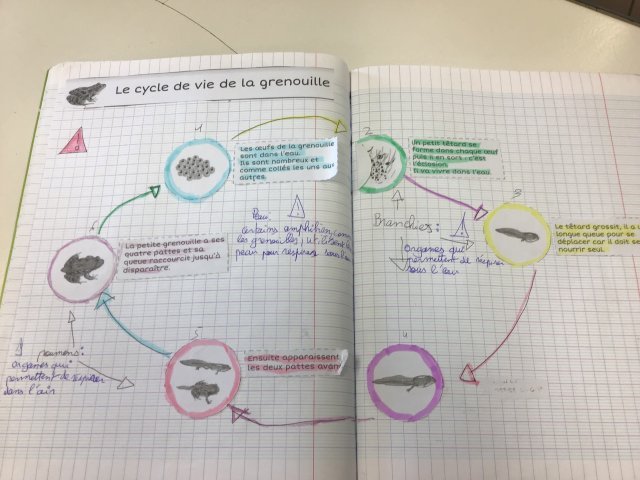 Le cycle de vie de la grenouille
1
Les œufs de la grenouille
sont dans l'eau.
Ils sont nombreux et
comme collés les uns aux
autres.
2
Un petit têtard se
forme dans chaque œuf
puis il en sort : c'est
l'éclosion.
Il va vivre dans l'eau.
3
Le têtard grossit, il a u
longue queue pour se
déplacer car il doit se
nourrir seul.
Peau:
certains amphibiens, comme
les grenouilles, utilisent la
peau pour respirer sous l'eau
Branchies:
organes qui
permettent de respirer
sous l'air
6
La petite grenouille a ses
quatre pattes et sa
queue raccourcit jusqu'à
disparaître.
4
5
Ensuite apparaissent
les deux pattes avan
poumons:
organes qui
permettent de respirer
dans l'air